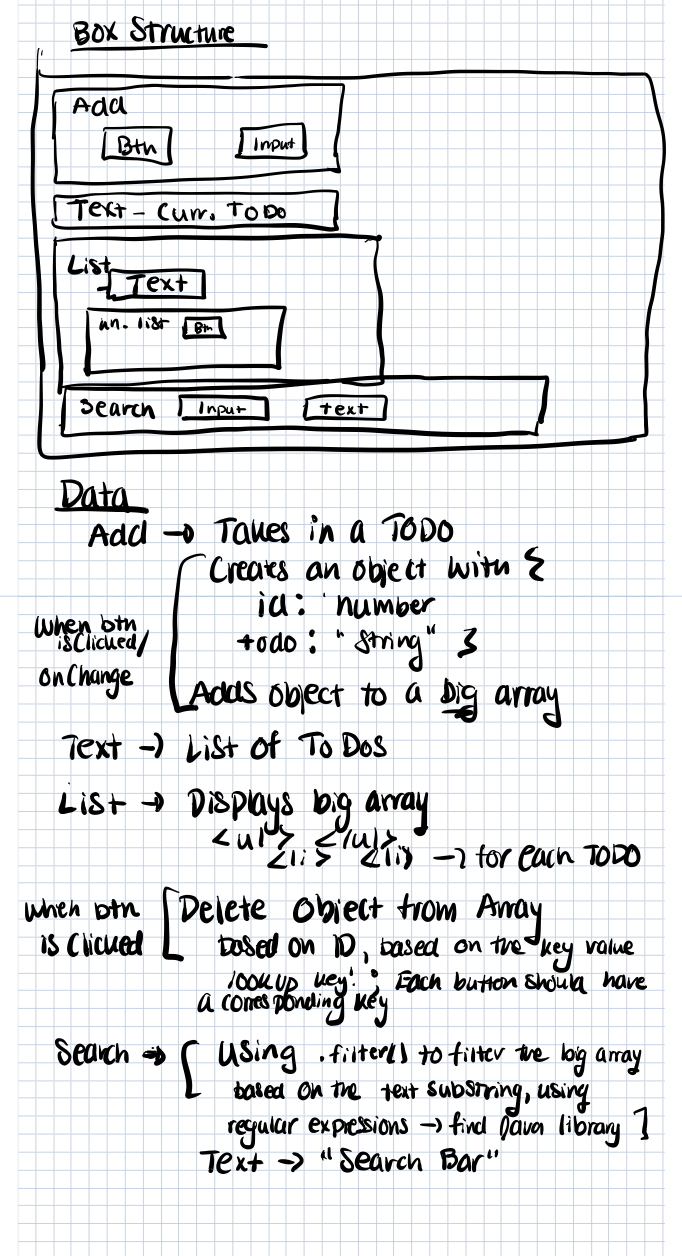 Box Structure
Add
Btn
Input
Text - Curr. ToDo
List
Text
un. list
Btn
Search
Input
text
Data
Add → Takes in a TODO
Creates an object with {
id: number
todo: "String" }
When btn
is Clicked/
onChange
Adds object to a big array
Text → List of To Dos
List → Displays big array
<ul> </ul>
<li> <li> → for each TODO
When btn
is Clicked
Delete Object from Array
based on ID, based on the key value
lookup key'; Each button should have
a corresponding key
Search → Using .filter() to filter the big array
based on the text substring, using
regular expressions → find Java library ]
Text → "Search Bar"